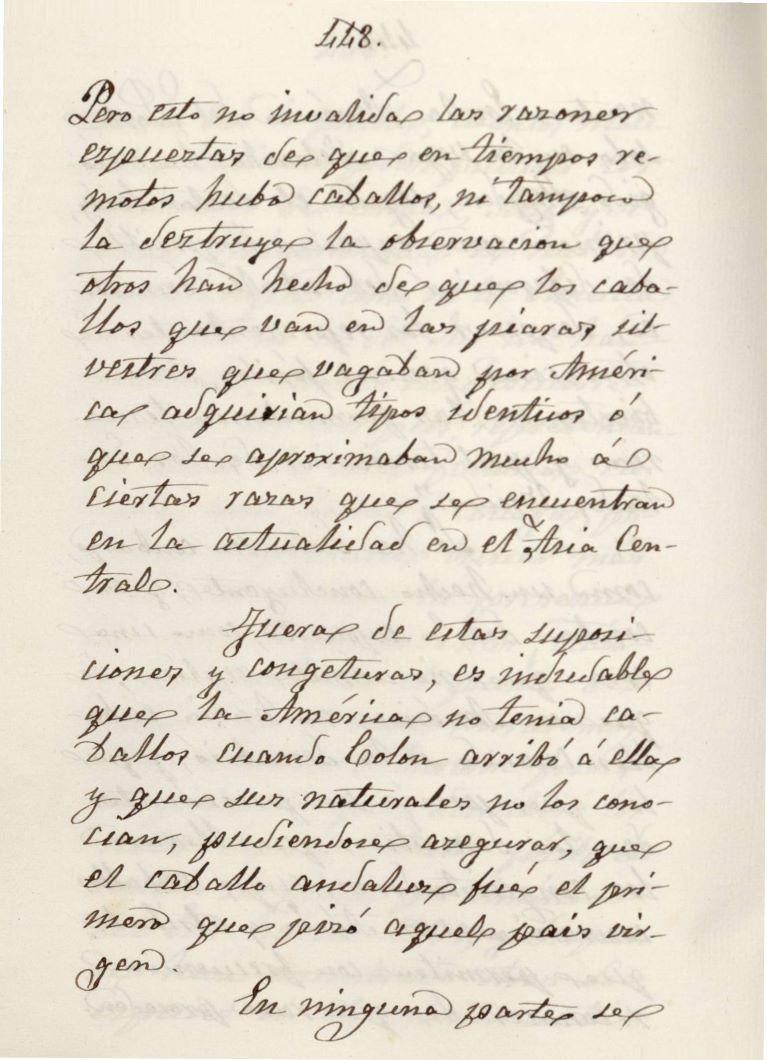 448.
Pero esto no invalida las razones
espuestas de que en tiempos re-
motos hubo caballos, ni tampoco
la destruye la observacion que
otros han hecho de que los caba-
llos que van en las piaras sil-
vestres que vagaban por Améri-
ca adquirian tipos identicos ó
que se aproximaban mucho á
ciertas razas que se encuentran
en la actualidad en el Asia Cen-
tral.
Fuera de estas suposi-
ciones y congeturas, es indudable
que la América no tenia ca-
ballos cuando Colon arribó á ella
y que sus naturales no los cono-
cian, pudiendose asegurar, que
el caballo andaluz fué el pri-
mero que pisó aquel pais vir-
gen.
En ninguna parte se